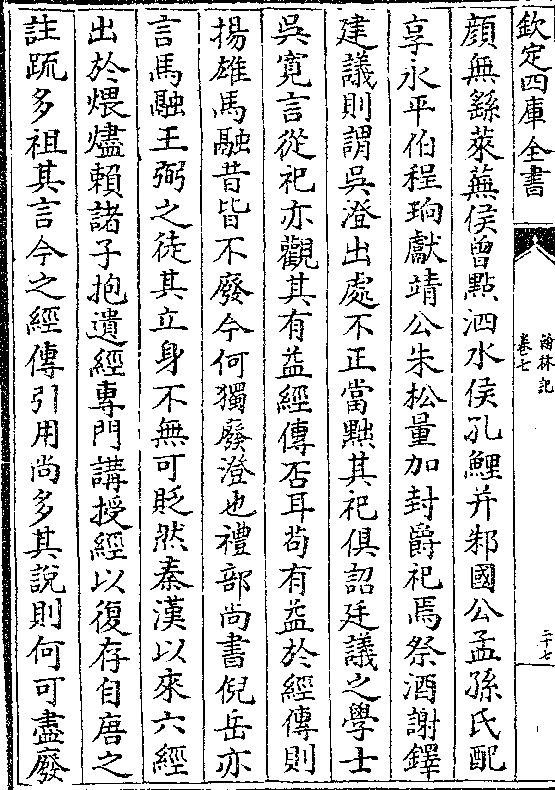 欽定四庫全書
翰林記
卷七
二十七
顔無繇萊蕪侯曾㸃泗水侯孔鯉并邾國公孟孫氏配
享永平伯程珦獻靖公朱松量加封爵祀焉祭酒謝鐸
建議則謂吳澄出處不正當黜其祀俱詔廷議之學士
吳寛言從祀亦觀其有益經傳否耳苟有益於經傳則
揚雄馬融昔皆不廢今何獨廢澄也禮部尚書倪岳亦
言馬融王弼之徒其立身不無可貶然秦漢以來六經
出於煨燼賴諸子抱遺經專門講授經以復存自唐之
註疏多祖其言今之經傳引用尚多其說則何可盡廢